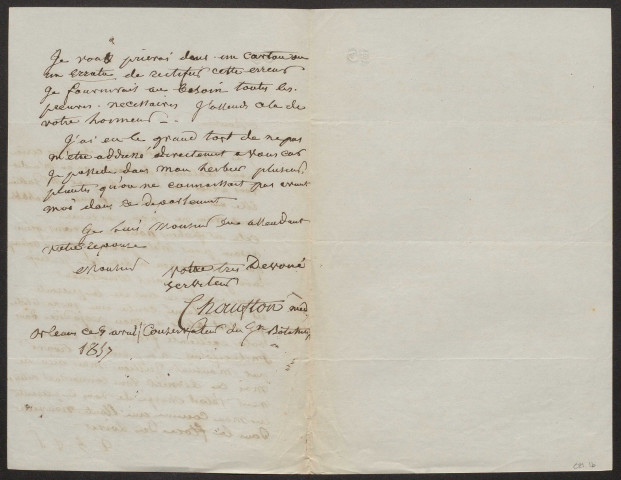 Je vous prierai dans un carton ou
un errata de rectifier cette erreur
Je fournirais au besoin toutes les
preuves necessaires J'attends cela de
votre honneur
J'ai eu le grand tort de ne pas
m'être addressé directement a vous car
Je possede dans mon herbier plusieurs
plantes qu'on ne connaissait pas avant
moi dans ce departement
Je suis Monsieur en attendant
votre reponse
Monsieur votre tres Devoué
Serviteur
Chauffton med
Orleans ce 9 avril Conservateur du Jn Botanique
1857